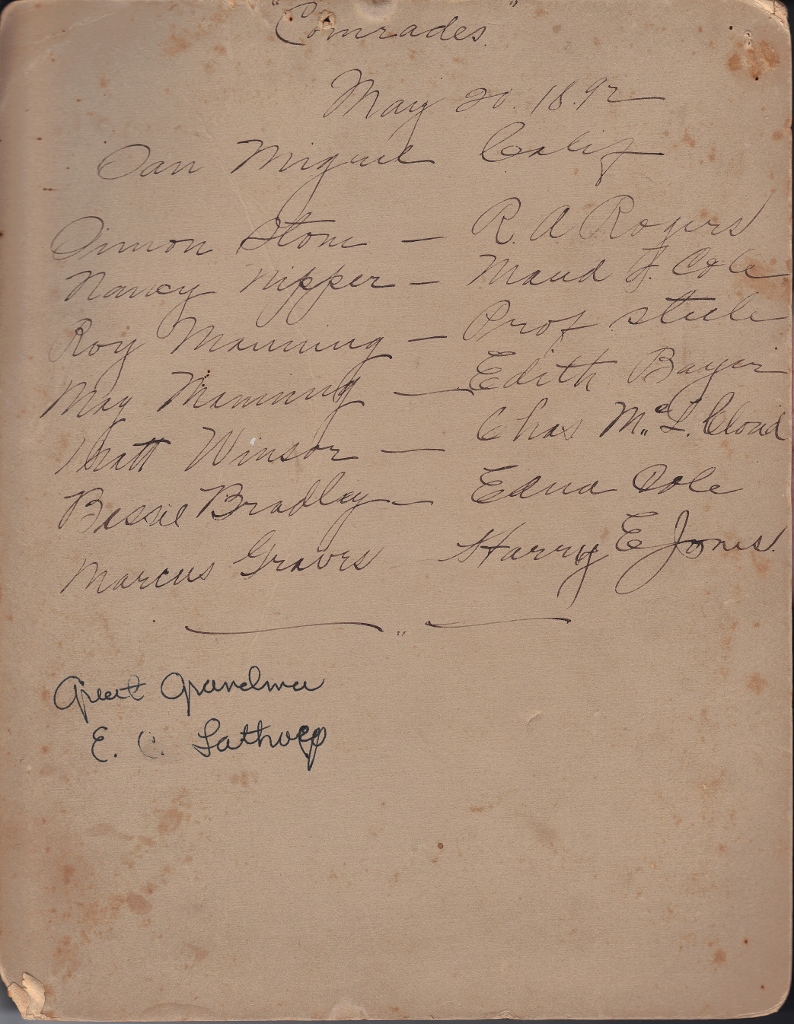 "Comrades"
May 20. 1892
San Miguel Calif
Simon Stone — R. A Rogers
Nancy Nipper — Maud F. Cole
Roy Manning — Prof Steele
May Manning — Edith Bayer
Matt Winsor — Chas Mc L. Cloud
Bessie Bradley — Edna Dole
Marcus Graves Harry E Jones.
Great Grandma
E. C. Lathrop